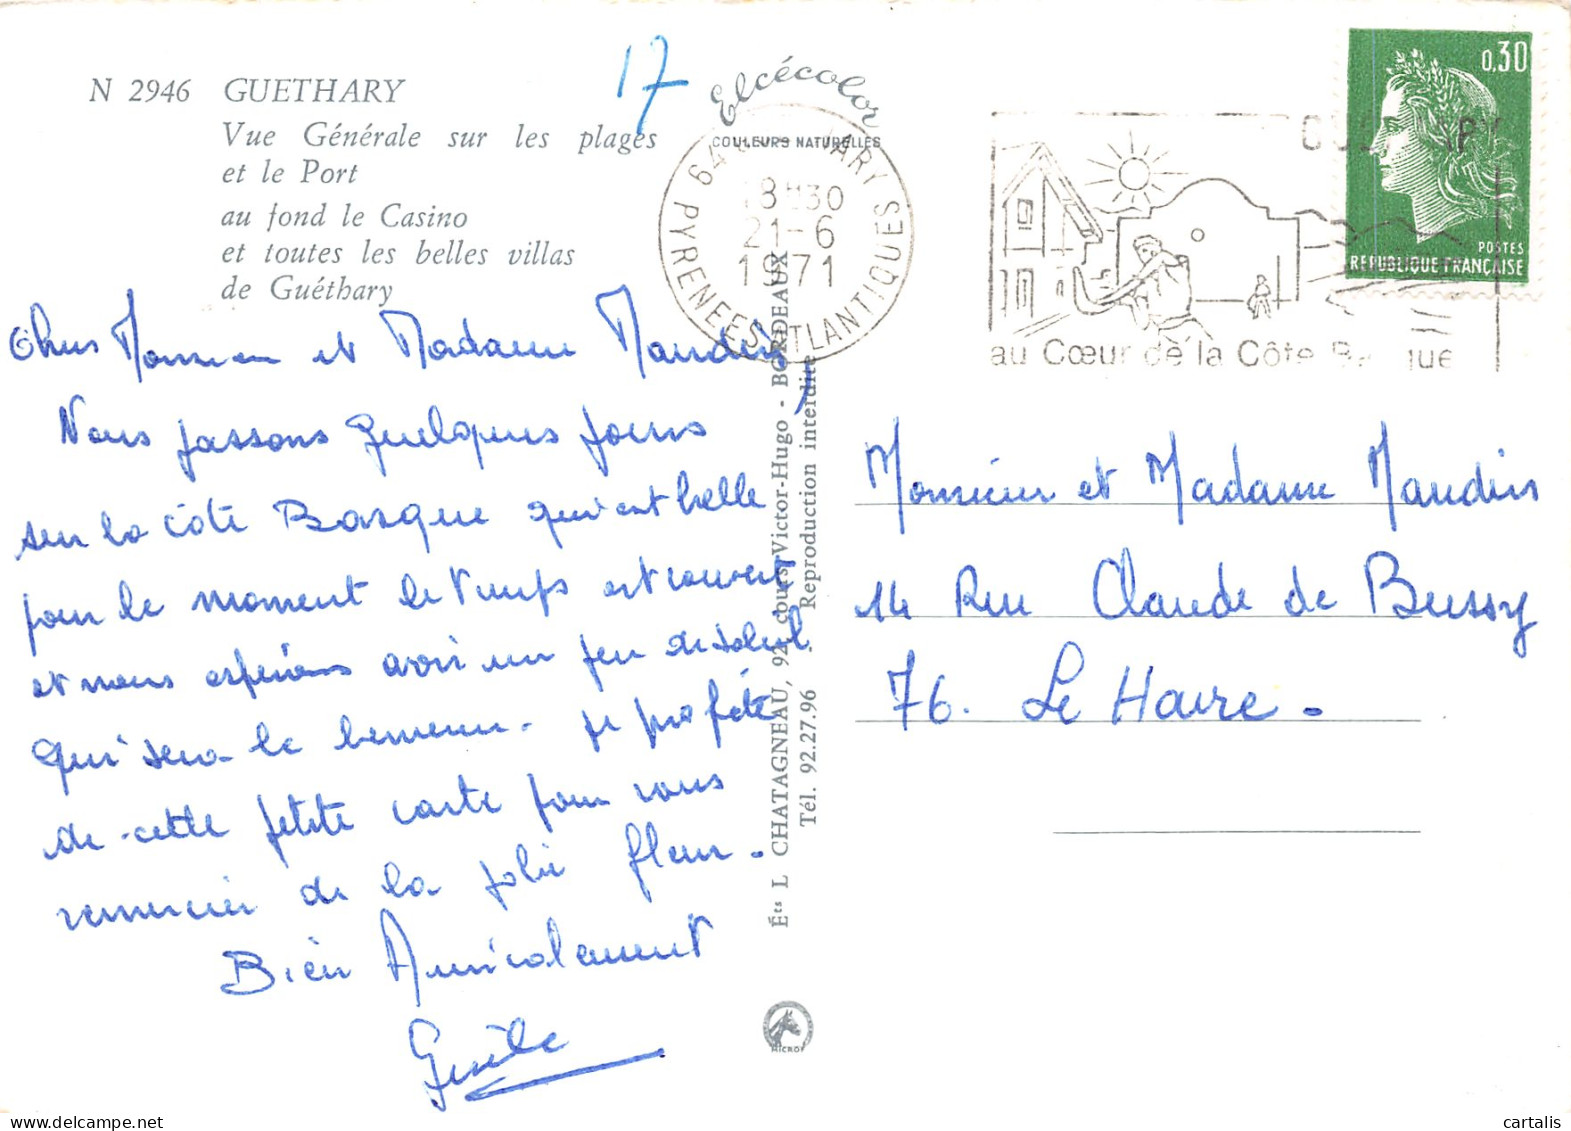 N 2946 GUETHARY
Vue Générale sur les plages
et le Port
au fond le Casino
et toutes les belles villas
de Guéthary
17
Elcécolor
COULEURS NATURELLES
64 ARY PYRENEES ATLANTIQUES
18H30
21-6
1971
au Cœur de la Côte
0,30
POSTES
REPUBLIQUE FRANÇAISE
Chers Monsieur et Madame Mauduis,
Nous passons quelques jours
sur la côte Basque qui est belle
pour le moment le temps est couvert
et nous espérons avoir un peu de soleil
qui sera le bienvenu. je profite
de cette petite carte pour vous
remercier de la jolie fleur.
Bien Amicalement
Éts L CHATAGNEAU, 92, cours Victor-Hugo - BORDEAUX
Tél. 92.27.96 - Reproduction interdite
MICRO
Monsieur et Madame Mauduis
14 Rue Claude de Bussy
76. Le Havre.
cartalis